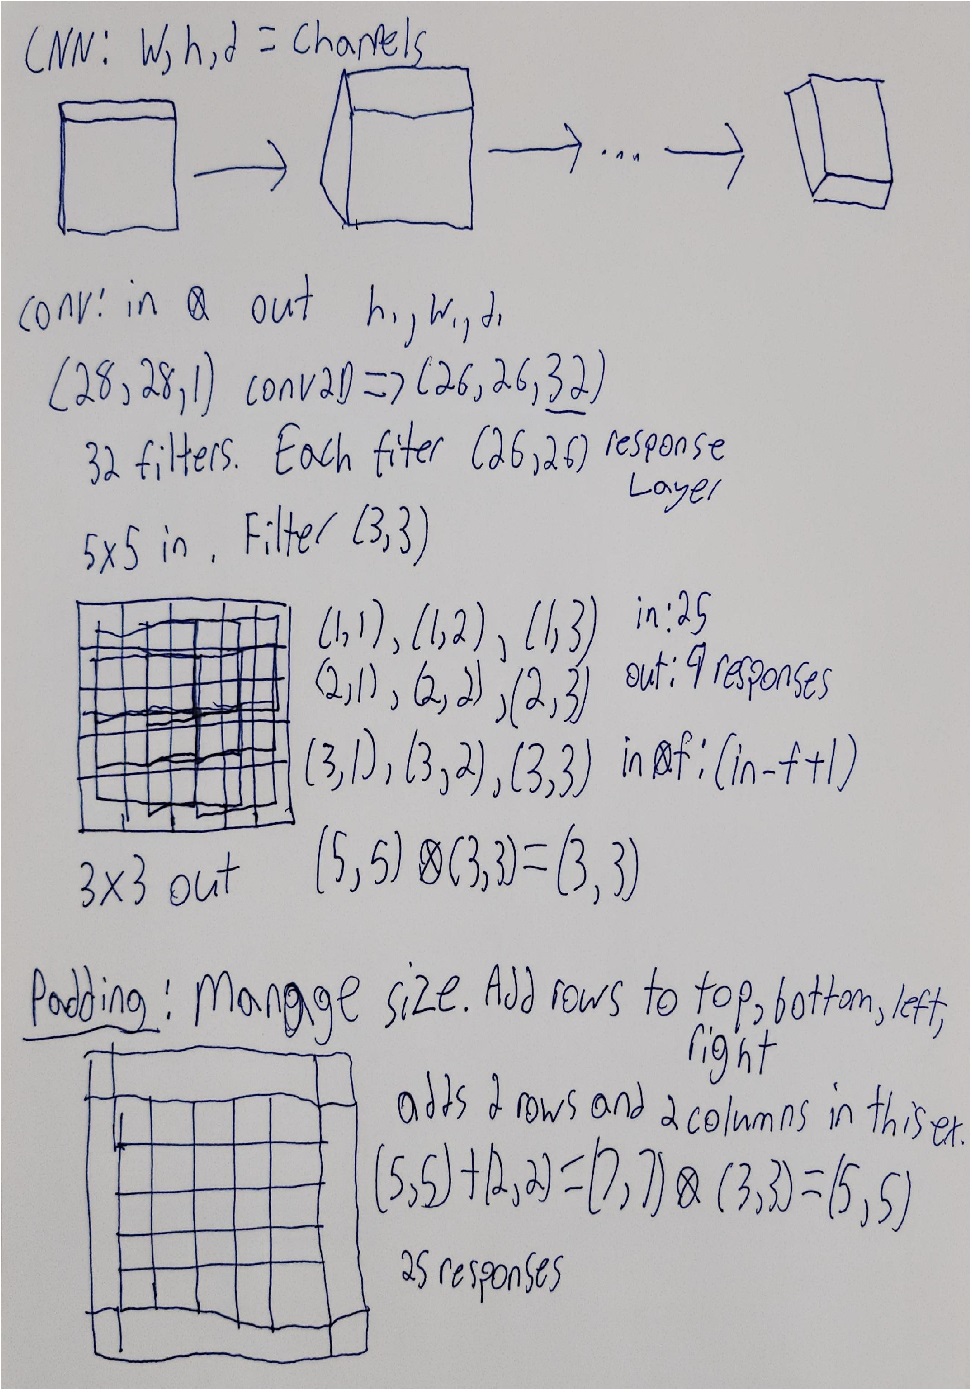 CNN: W, h, d = Channels
...
conv: in ⊗ out h1, W1, d1
(28, 28, 1) conv2D => (26, 26, 32)
32 filters. Each fiter (26, 26) response
Layer
5x5 in . Filter (3,3)
(1,1), (1,2), (1,3) in: 25
(2,1), (2,2), (2,3) out: 9 responses
(3,1), (3,2), (3,3) in⊗f: (in-f+1)
(5,5) ⊗ (3,3) = (3,3)
3x3 out
Padding: Manage size. Add rows to top, bottom, left,
right
adds 2 rows and 2 columns in this ex.
(5,5) + (2,2) = (7,7) ⊗ (3,3) = (5,5)
25 responses